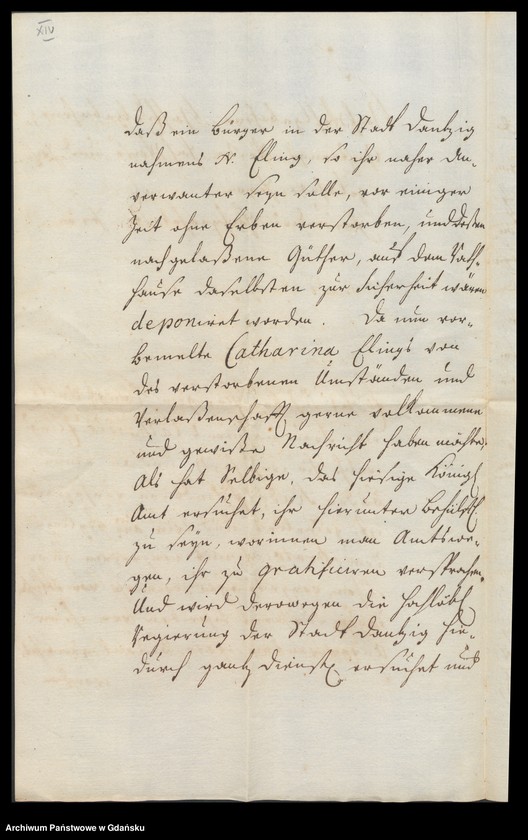 XIV
daß ein Bürger in der Stadt Dantzig
nahmens N. Eling, so ihr naher An-
verwanter seyn solle, vor einiger
Zeit ohne Erben verstorben, und deßen
nachgelaßene Güther, auf dem Rath-
hause daselbsten zur Sicherheit wären
deponiret worden. Da nun vor-
bemelte Catharina Elings von
des verstorbenen Umständen und
Verlaßenschafft gerne vollkommene
und gewiße Nachricht haben möchte,
Als hat Selbige, das hiesige Königl.
Amt ersuchet, ihr hierunter behülfl.
zu seyn, worinnen man Amtswe-
gen, ihr zu gratificiren versprochen.
Und wird derowegen die hochlöbl.
Regierung der Stadt Dantzig hie-
durch gantz dienstl. ersuchet und
Archiwum Państwowe w Gdańsku